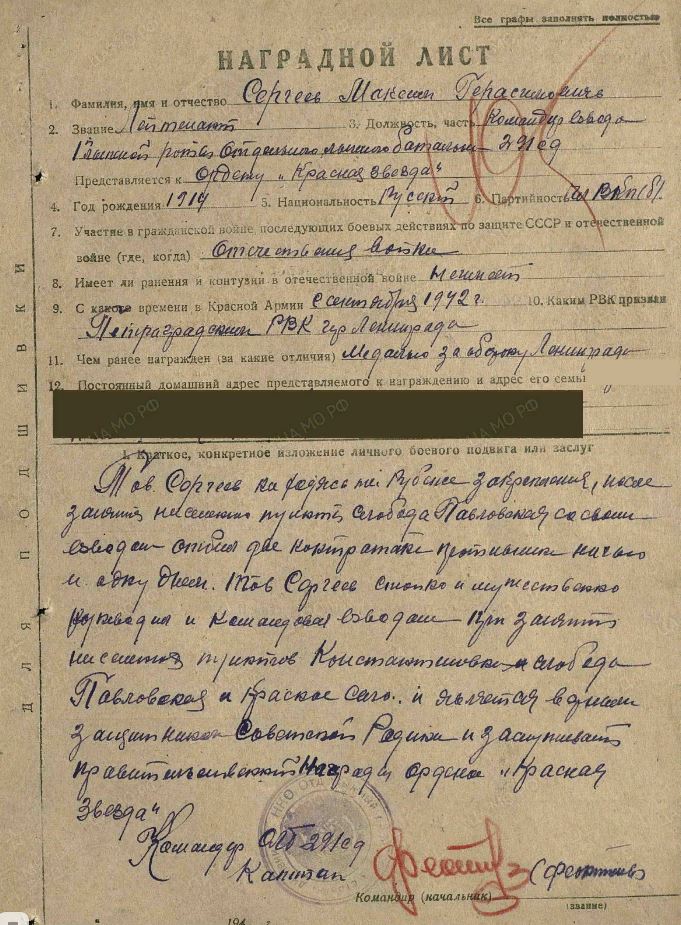 Все графы заполнять полностью
НАГРАДНОЙ ЛИСТ
1. Фамилия, имя и отчество Сергеев Максим Герасимович
2. Звание Лейтенант 3. Должность, часть Командир взвода
1 лыжной роты Отдельного лыжного батальона 291 сд
Представляется к Ордену „Красная звезда“
4. Год рождения 1914 5. Национальность Русский 6. Партийность Чл ВКП(б).
7. Участие в гражданской войне, последующих боевых действиях по защите СССР и отечественной
войне (где, когда) Отечественная война
8. Имеет ли ранения и контузии в отечественной войне не имеет
9. С какого времени в Красной Армии с сентября 1942 г. 10. Каким РВК призван
Петроградским РВК гор Ленинграда
11. Чем ранее награжден (за какие отличия) Медалью за оборону Ленинграда
12. Постоянный домашний адрес представляемого к награждению и адрес его семьи
I. Краткое, конкретное изложение личного боевого подвига или заслуг
Тов. Сергеев находясь на рубеже закрепления, после
занятия населенного пункта слобода Павловская со своим
взводом отбил две контратаки противника ночью
и одну днем. Тов Сергеев стойко и мужественно
руководил и командовал взводом при занятии
населенных пунктов Константиновка слобода
Павловская и Красное село. и является
защитником Советской Родины и заслуживает
правительственной Награды ордена „Красная
Звезда“
Командир ОЛБ 291 сд
Капитан
Командир (начальник)
(звание)
194
ДЛЯ ПОДШИВКИ